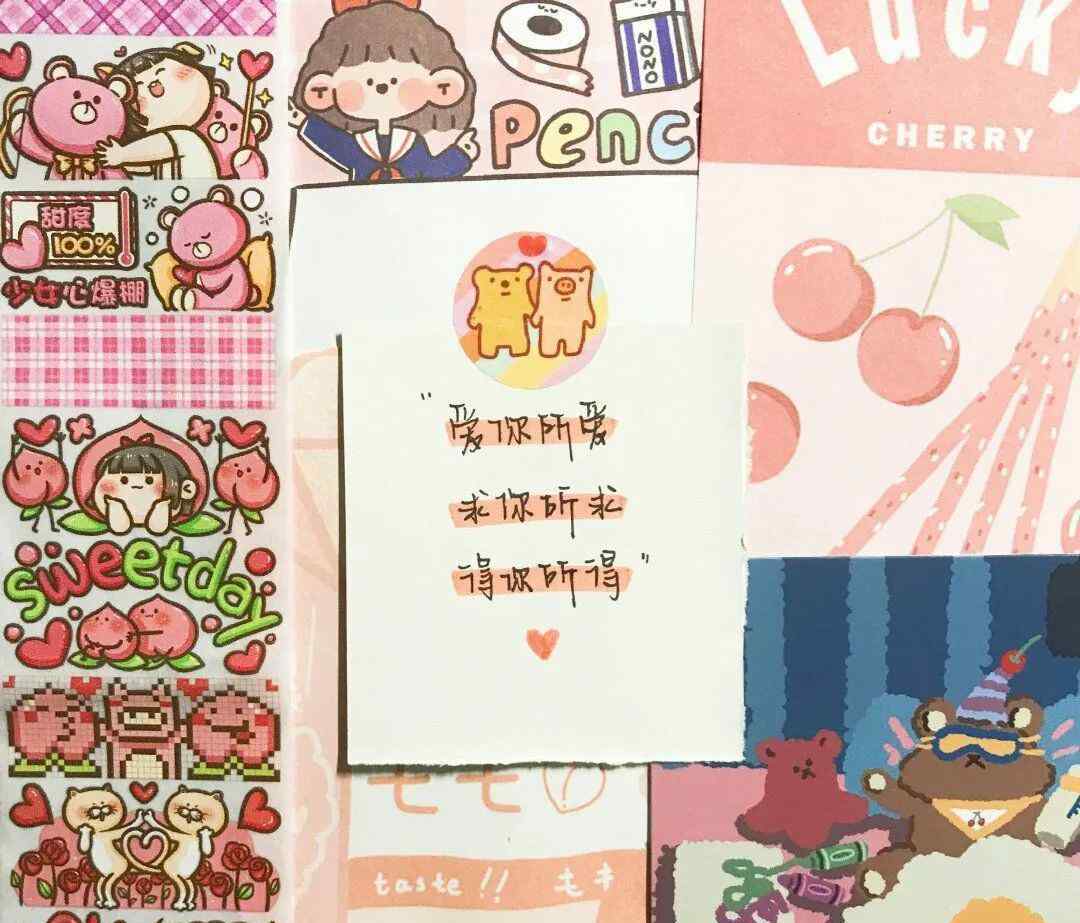 NONO
Penc
Lucky
CHERRY
甜度
100%
少女心爆棚
"爱你所爱
求你所求
得你所得"
sweetday
モモ
taste!! モキ